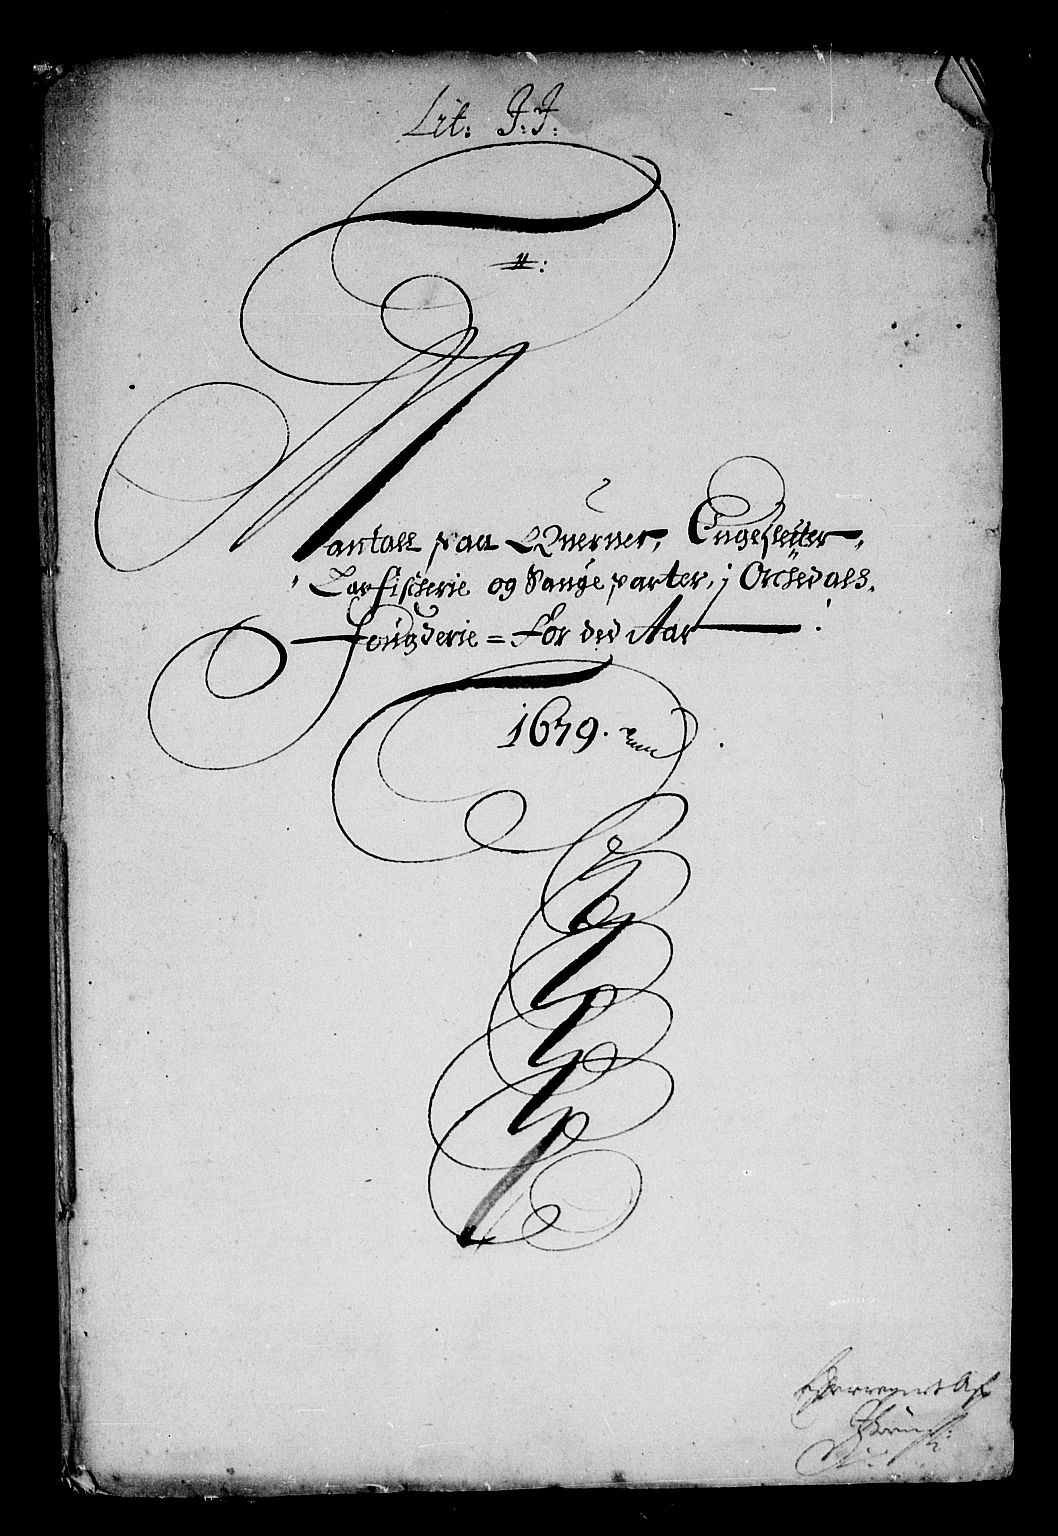 Lit: J: J:
N:
Mantall paa QQuerner, Engesletter,
Laxfischerie og Sauge parter, j Orchedals,
Fougderie = For ded Aar
1679.